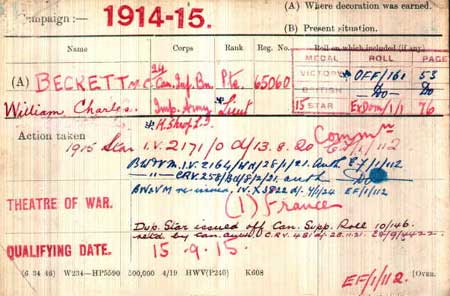 Campaign :— 1914-15.
(A) Where decoration was earned.
(B) Present situation.
Name Corps Rank Reg. No. Roll on which included (if any)
MEDAL ROLL PAGE
VICTORY * OFF/161 53
BRITISH —Do— Do
15 STAR ExDom/1/1 76
(A) BECKETT W.C. 24 Can. Inf. Bn. Pte. 65060
William Charles. Imp. Army Lieut
* K. Shrop L.I.
Action taken
Commn
1915 Star I.V. 2171/0 d/13.8.20 E.F/1/112
BWVM. I.V. 2164/ d/28/1/21. Auth E.F/1/112
—"— CRV. 258/ d/8/2/21. auth Do
BW&VM re-issued, IV. X3822 d. 4/1/24 EF/1/112
THEATRE OF WAR. (1) France
Dup. Star issued off Can. Supp. Roll 10/146.
retd by Can. auth C.R.V. 481 d. 28.11.21.
QUALIFYING DATE. 15.9.15.
(6 34 46) W234—HP5590 500,000 4/19 HWV(P240) K608 [Over.
EF/1/112.